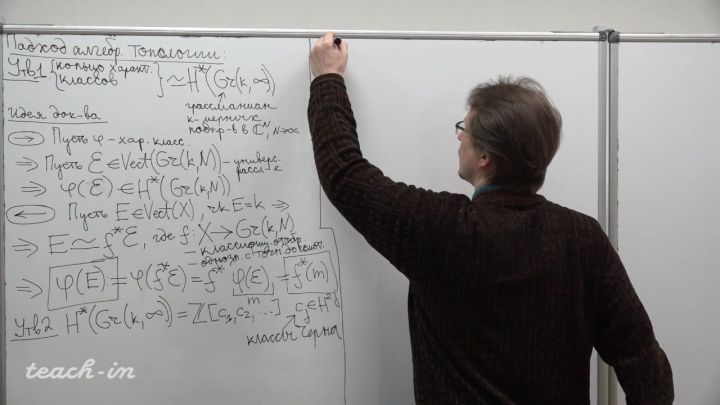 Подход алгебр. Топологии:
Утв1 {кольцо характ. классов} ≃ H*(Gr(k,∞))
грассманиан
k-мерных
подпр-в в ℂᴺ, N→∞
Идея док-ва
(→) Пусть φ - хар. класс.
⇒ Пусть ℰ ∈ Vect(Gr(k,N)) - универс. рассл-е
⇒ φ(ℰ) ∈ H*(Gr(k,N))
(←) Пусть E ∈ Vect(X), rk E = k ⇒
⇒ E ≃ f*ℰ, где f: X → Gr(k,N)
- классифиц. отобр.
- однозн. с точн. до гомот.
⇒ φ(E) = φ(f*ℰ) = f* φ(ℰ) = f*(m)
m
Утв2 H*(Gr(k,∞)) = ℤ[c₁, c₂, ...] cⱼ ∈ H²ʲ
классы Черна
teach-in